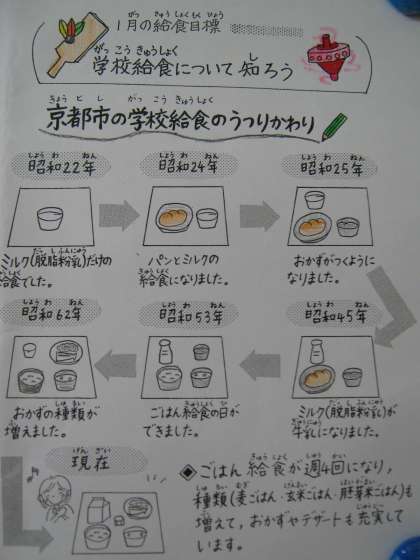 1月の給食目標
学校給食について知ろう
京都市の学校給食のうつりかわり
昭和22年
ミルク(脱脂粉乳)だけの
給食でした。
昭和24年
パンとミルクの
給食になりました。
昭和25年
おかずがつくように
なりました。
昭和45年
ミルク(脱脂粉乳)が
牛乳になりました。
昭和53年
ごはん給食の日が
できました。
昭和62年
おかずの種類が
増えました。
現在
◆ごはん給食が週4回になり、
種類(麦ごはん・玄米ごはん・胚芽米ごはん)も
増えて、おかずやデザートも充実して
います。